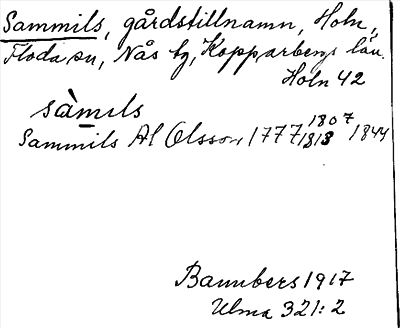 Sammils, gårdstillnamn, Holn,
Floda sn, Nås tg, Kopparbergs län.
Holn 42
sàmils
Sammils Al Olsson 1777 1807 1813 1844
Bannbers 1917
Ulma 321:2